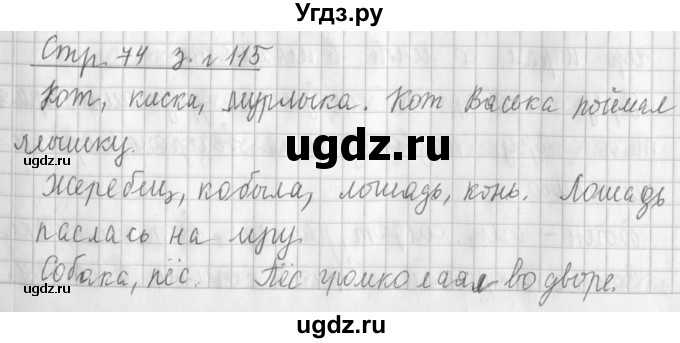 Угдз.ру
Стр. 74 з. г 115
Кот, киска, мурлыка. Кот Васька поймал
мышку.
ugdz.ru
ugdz.ru
ugdz.ru
Жеребец, кобыла, лошадь, конь. Лошадь
паслась на лугу.
Собака, пёс. Пёс громко лаял во дворе.
ugdz.ru
ugdz.ru
ugdz.ru